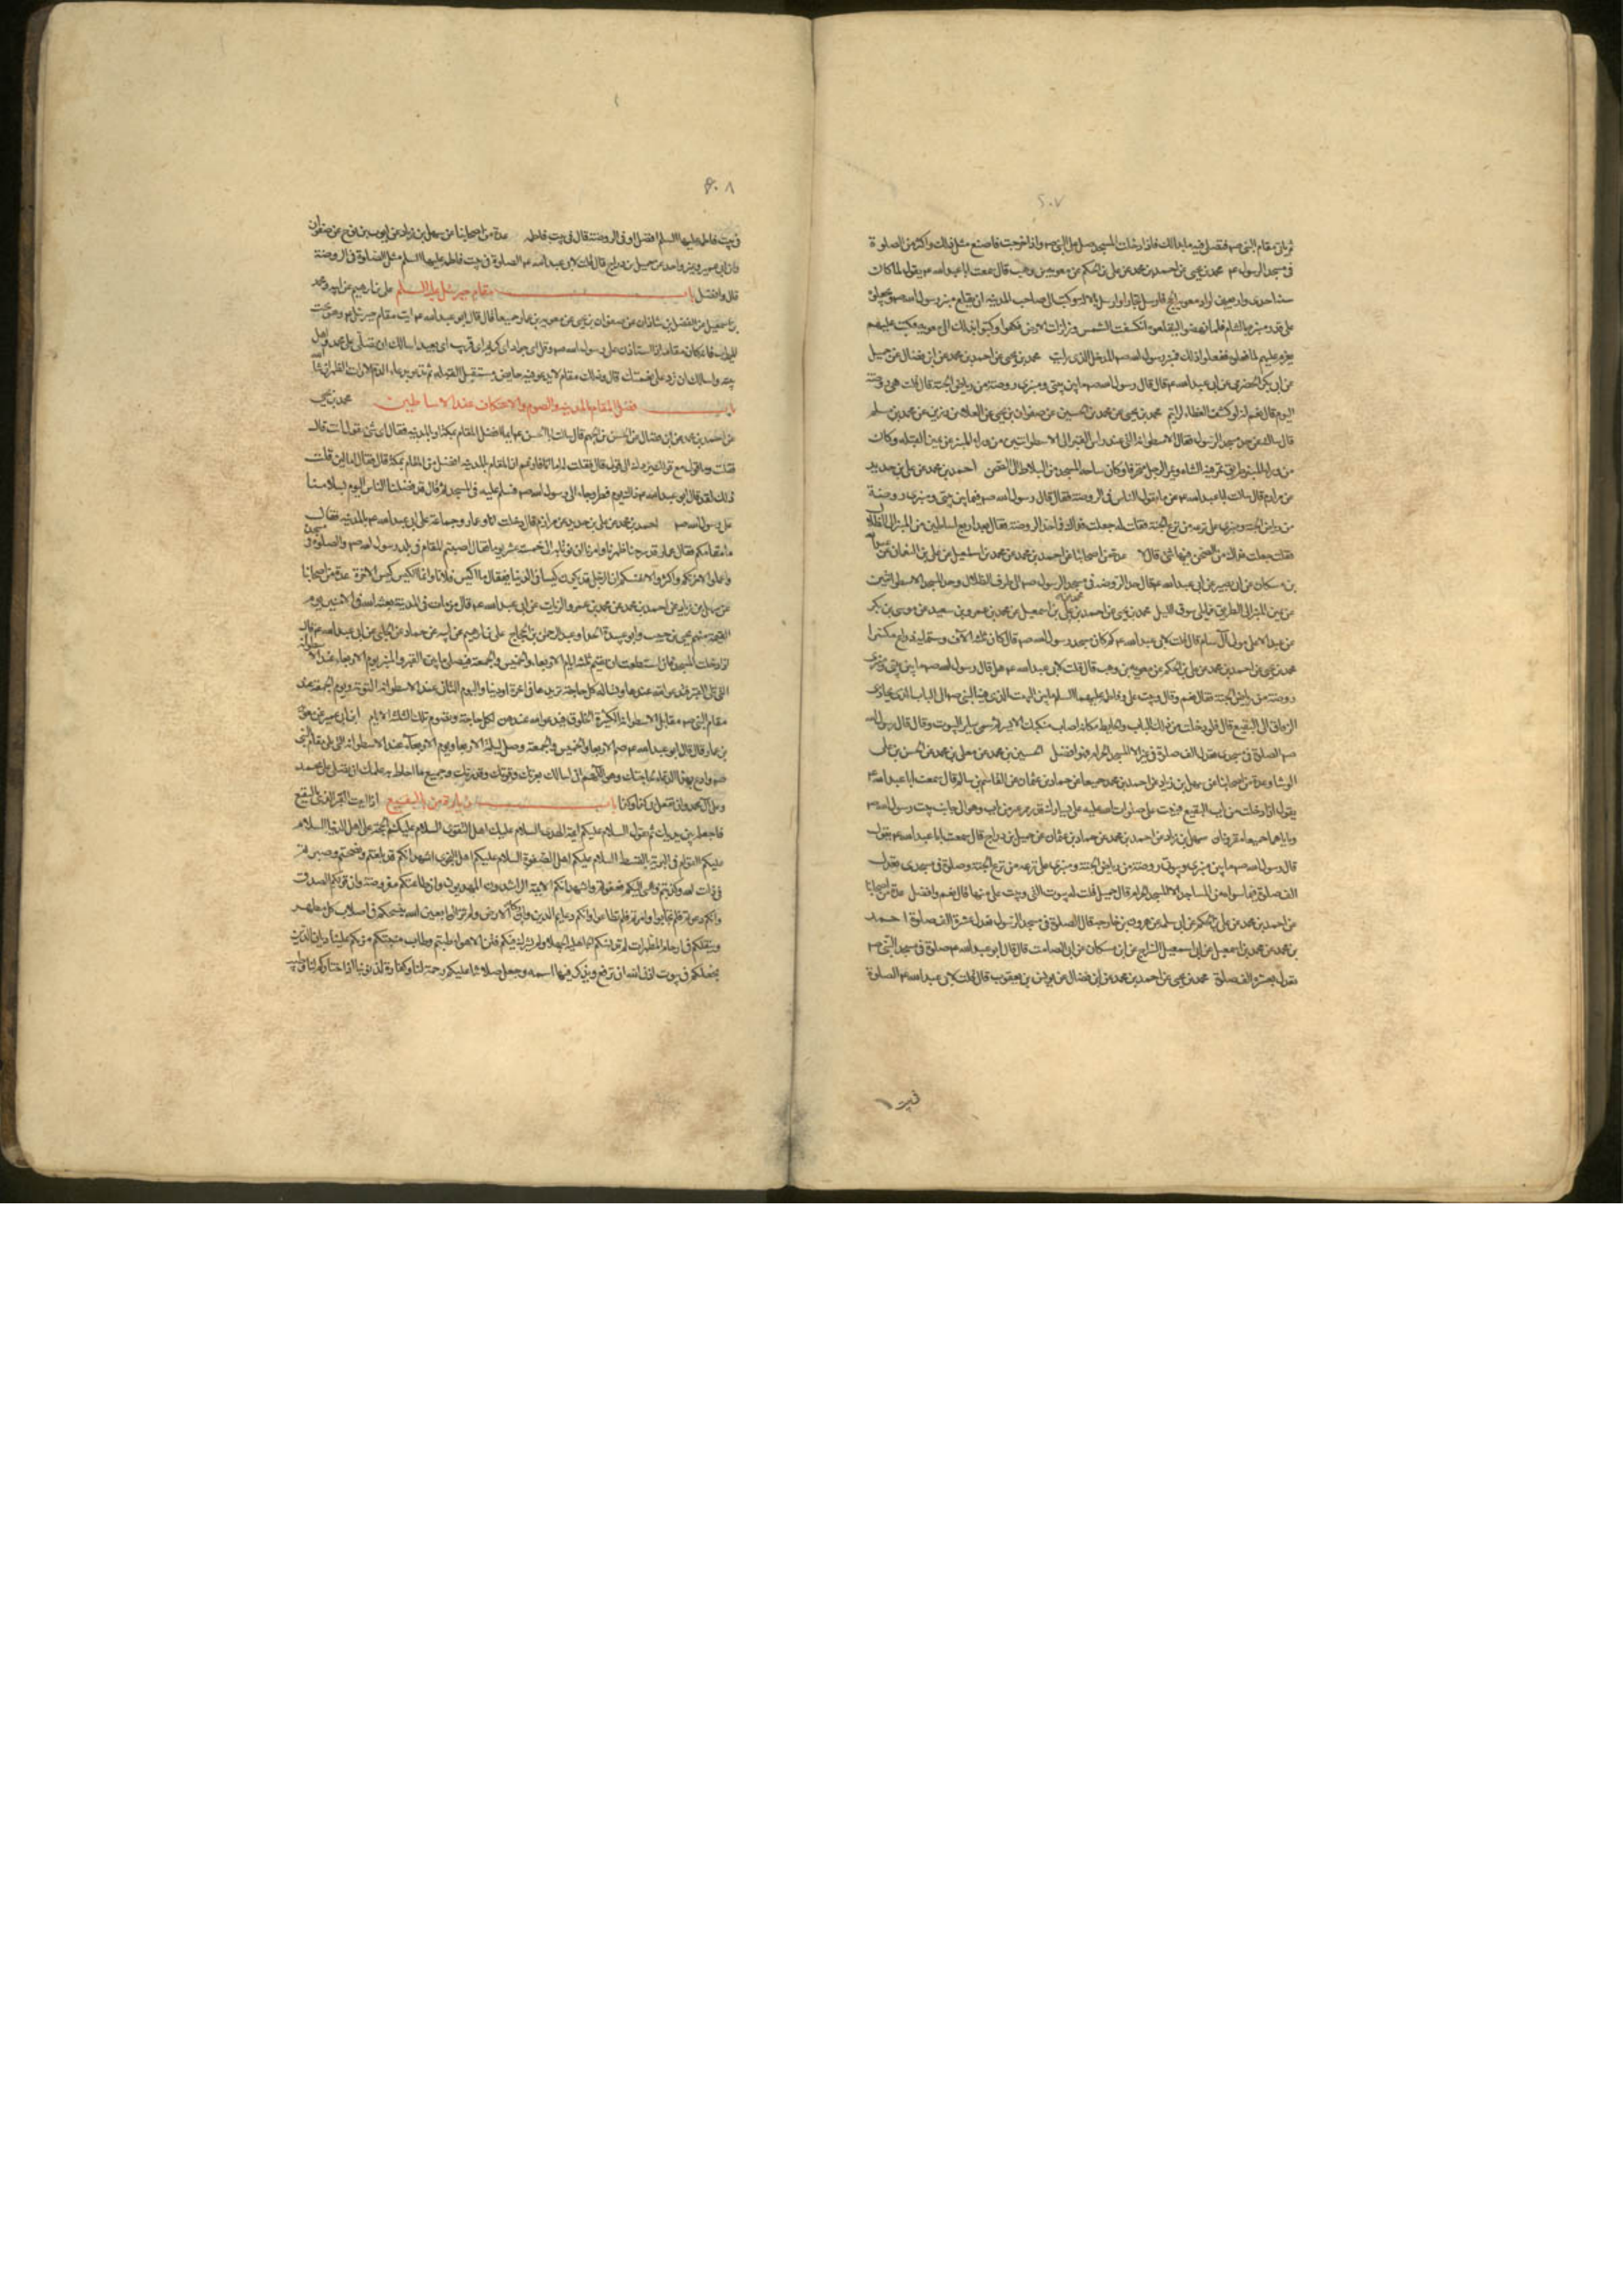 ٤٠٧
ثم تأتى مقام النبى صم فتصلى فيه ما بدا لك فاذا دخلت المسجد فصل على النبى صم واذا خرجت فاصنع مثل ذلك واكثر من الصلوة
فى مسجد الرسول صم محمد بن يحيى عن احمد بن محمد عن على بن الحكم عن معوية بن وهب قال سمعت ابا عبد الله ع يقول لما كان
سنة احدى واربعين اراد معوية الحج فارسل نجارا وارسل بالالة وكتب الى صاحب المدينة ان يقلع منبر رسول الله صم ويجعلوه
على قدر منبره بالشام فلما نهضوا ليقلعوه انكسفت الشمس وزلزلت الارض فكفوا وكتبوا بذلك الى معوية فكتب عليهم
يعزم عليهم لما فعلوه ففعلوا ذلك فمنبر رسول الله صم المدخل الذى رايت محمد بن يحيى عن احمد بن محمد عن ابن فضال عن جميل
عن ابى بكر الحضرمى عن ابى عبد الله ع قال قال رسول الله صم ما بين بيتى ومنبرى روضة من رياض الجنة قال قلت هى روضة
اليوم قال نعم انه لو كشف الغطاء لرايتم محمد بن يحيى عن محمد بن الحسين عن صفوان بن يحيى عن العلا بن رزين عن محمد بن مسلم
قال سالته عن حد مسجد الرسول فقال الاسطوانة التى عند راس القبر الى الاسطوانتين من وراء المنبر عن يمين القبلة وكان
من وراء المنبر طريق تمر فيه الشاة ويمر الرجل منحرفا وكان ساحة المسجد من البلاط الى الصحن احمد بن محمد عن على بن حديد
عن مرازم قال سالت ابا عبد الله ع عما يقول الناس فى الروضة فقال قال رسول الله صم فيما بين بيتى ومنبرى روضة
من رياض الجنة ومنبرى على ترعة من ترع الجنة فقلت له جعلت فداك فما حد الروضة فقال بعد اربع اساطين من المنبر الى الظلال
فقلت جعلت فداك من الصحن فيها شئ قال لا عدة من اصحابنا عن احمد بن محمد عن محمد بن اسمعيل عن على بن النعمان عن عبد الله
بن مسكان عن ابى بصير عن ابى عبد الله ع قال حد الروضة فى مسجد الرسول صم الى طرف الظلال وحد المسجد الاسطوانتين
عن يمين المنبر الى الطريق مما يلى سوق الليل محمد بن يحيى عن احمد بن محمد عن على بن اسمعيل عن محمد بن عمرو بن سعيد عن موسى بن بكر
عن عبد الاعلى مولى آل سام قال قلت لابى عبد الله ع كم كان مسجد رسول الله صم قال كان ثلثة الاف وستمائة ذراع مكسرا
محمد بن يحيى عن احمد بن محمد عن على بن الحكم عن معوية بن وهب قال قلت لابى عبد الله ع هل قال رسول الله صم ما بين بيتى ومنبرى
روضة من رياض الجنة فقال نعم وقال وبيت على وفاطمة عليهما السلم ما بين البيت الذى فيه النبى صم الى الباب الذى يحاذى
الزقاق الى البقيع قال فلو دخلت من ذلك الباب والحايط مكانه اصاب منكبك الايسر ثم سمى ساير البيوت وقال قال رسول الله
صم الصلوة فى مسجدى تعدل الف صلوة فى غيره الا المسجد الحرام فهو افضل الحسين بن محمد عن معلى بن محمد عن الحسن بن على
الوشا وعدة من اصحابنا عن سهل بن زياد عن احمد بن محمد جميعا عن حماد بن عثمان عن القاسم بن سالم قال سمعت ابا عبد الله ع
يقول اذا دخلت من باب البقيع فبيت على صلوات الله عليه على يسارك قدر ممر عنز من الباب وهو الى جانب بيت رسول الله صم
وباباهما جميعا مقرونان سهل بن زياد عن احمد بن محمد عن حماد بن عثمان عن جميل بن دراج قال سمعت ابا عبد الله ع يقول
قال رسول الله صم ما بين منبرى وبيوتى روضة من رياض الجنة ومنبرى على ترعة من ترع الجنة وصلوة فى مسجدى تعدل
الف صلوة فيما سواه من المساجد الا المسجد الحرام قال جميل قلت له بيوت النبى وبيت على منها قال نعم وافضل عدة من اصحابنا
عن احمد بن محمد عن على بن الحكم عن ابى سلمة عن هرون بن خارجة قال الصلوة فى مسجد الرسول تعدل عشرة الاف صلوة احمد
بن محمد عن محمد بن اسمعيل عن ابى اسمعيل السراج عن ابن مسكان عن ابى الصامت قال قال ابو عبد الله ع صلوة فى مسجد النبى صم
تعدل بعشرة الف صلوة محمد بن يحيى عن احمد بن محمد عن ابن فضال عن يونس بن يعقوب قال قلت لابى عبد الله ع الصلوة
فى بيت
٤٠٨
فى بيت فاطمة عليها السلم افضل او فى الروضة قال فى بيت فاطمة عدة من اصحابنا عن سهل بن زياد عن ايوب بن نوح عن صفوان
وابن ابى عمير وغير واحد عن جميل بن دراج قال قلت لابى عبد الله ع الصلوة فى بيت فاطمة عليها السلم مثل الصلوة فى الروضة
قال وافضل باب مقام جبرئيل عليه السلم على بن ابرهيم عن ابيه ومحمد
بن اسمعيل عن الفضل بن شاذان عن صفوان بن يحيى عن معوية بن عمار جميعا قال قال ابو عبد الله ع ايت مقام جبرئيل ع وهو تحت
الميزاب فانه كان مقامه اذا استاذن على رسول الله صم وقل اى جواد اى كريم اى قريب اى بعيد اسالك ان تصلى على محمد واهل
بيته واسالك ان ترد على نعمتك قال وذلك مقام لا تدعو فيه حايض تستقبل القبلة ثم تدعو بدعاء الدم الا رات الطهر ان شا الله
باب فضل المقام بالمدينة والصوم والاعتكاف عند الاساطين محمد بن يحيى
عن احمد بن محمد عن ابن فضال عن الحسن بن الجهم قال سالت ابا الحسن ع ايما افضل المقام بمكة او بالمدينة فقال اى شئ تقول انت قال
فقلت وما قولى مع قولك قال ان قولك يرد الى قولى قال فقلت له اما انا فازعم ان المقام بالمدينة افضل من المقام بمكة قال فقال اما لئن قلت
ذلك لقد قال ابو عبد الله ع ذلك يوم فطر وجاء الى رسول الله صم فسلم عليه فى المسجد ثم قال قد فضلنا الناس اليوم بسلامنا
على رسول الله صم احمد بن محمد عن على بن حديد عن مرازم قال دخلت انا وعمار وجماعة على ابى عبد الله ع بالمدينة فقال
ما مقامكم فقال عمار قد سرحنا ظهرنا وامرنا ان نؤتى به الى خمسة عشر يوما فقال اصبتم المقام فى بلد رسول الله صم والصلوة فى مسجده
واعملوا لاخرتكم واكثروا لانفسكم ان الرجل قد يكون كيسا فى الدنيا فيقال ما اكيس فلانا وانما الكيس كيس الاخرة عدة من اصحابنا
عن سهل بن زياد عن احمد بن محمد عن محمد بن عمرو الزيات عن ابى عبد الله ع قال من مات فى المدينة بعثه الله فى الامنين يوم
القيمة منهم يحيى بن حبيب وابو عبيدة الحذاء وعبد الرحمن بن الحجاج على بن ابرهيم عن ابيه عن حماد عن الحلبى عن ابى عبد الله ع قال
اذا دخلت المسجد فان استطعت ان تقيم ثلثة ايام الاربعاء والخميس والجمعة فتصلى ما بين القبر والمنبر يوم الاربعاء عند الاسطوانة
التى تلى القبر فتدعو الله عندها وتساله كل حاجة تريدها فى اخرة او دنيا واليوم الثانى عند اسطوانة التوبة ويوم الجمعة عند
مقام النبى صم مقابل الاسطوانة الكثيرة الخلوق فتدعو الله عندهن لكل حاجة وتصوم تلك الثلثة الايام ابن ابى عمير عن معوية
بن عمار قال قال ابو عبد الله ع صم الاربعاء والخميس والجمعة وصل ليلة الاربعاء ويوم الاربعاء عند الاسطوانة التى تلى مقام النبى
صم وادع بهذا الدعاء لحاجتك وهو اللهم انى اسالك بعزتك وقوتك وقدرتك وجميع ما احاط به علمك ان تصلى على محمد
وعلى آل محمد وان تفعل بى كذا وكذا باب زيارة من بالبقيع اذا اتيت القبر الذى بالبقيع
فاجعله بين يديك ثم تقول السلام عليكم ايمة الهدى السلام عليكم اهل التقوى السلام عليكم الحجة على اهل الدنيا السلام
عليكم القوام فى البرية بالقسط السلام عليكم اهل الصفوة السلام عليكم اهل النجوى اشهد انكم قد بلغتم ونصحتم وصبرتم
فى ذات الله وكذبتم واسئ اليكم فغفرتم واشهد انكم الايمة الراشدون المهديون وان طاعتكم مفروضة وان قولكم الصدق
وانكم دعوتم فلم تجابوا وامرتم فلم تطاعوا وانكم دعايم الدين واركان الارض ولم تزالوا بعين الله ينسخكم فى اصلاب كل مطهر
وينقلكم فى ارحام المطهرات لم تدنسكم الجاهلية الجهلاء ولم تشرك فيكم فتن الاهواء طبتم وطاب منبتكم من بكم علينا ديان الدين
فجعلكم فى بيوت اذن الله ان ترفع ويذكر فيها اسمه وجعل صلاتنا عليكم رحمة لنا وكفارة لذنوبنا اذ اختاركم لنا وطيب